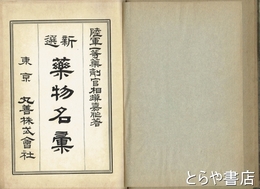 陸軍一等藥劑官相澤嘉聰著
新選
藥物名彙
東京 丸善株式會社
© とらや書店